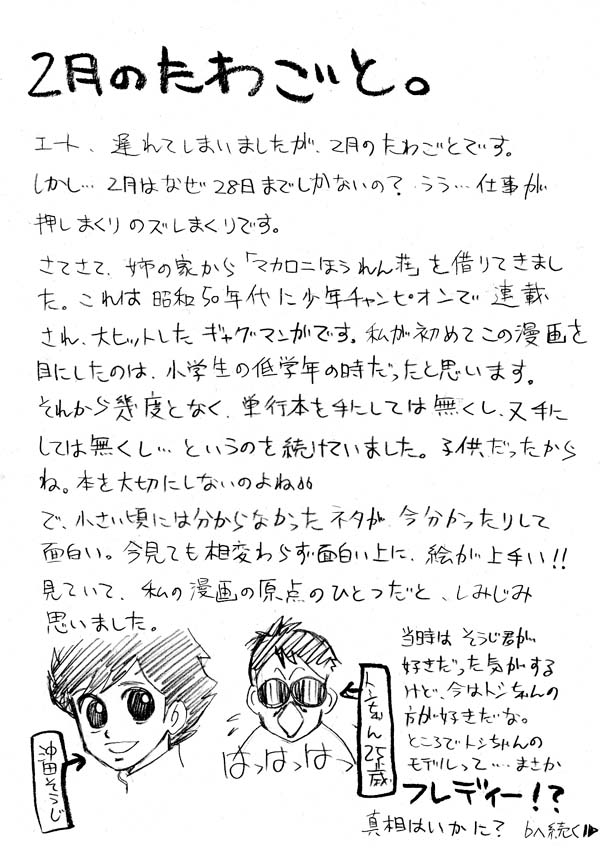 2月のたわごと。
エート、遅れてしまいましたが、2月のたわごとです。
しかし… 2月はなぜ28日までしかないの? うう…仕事が
押しまくりのズレまくりです。
さてさて、姉の家から「マカロニほうれん荘」を借りてきまし
た。これは昭和50年代に少年チャンピオンで連載
され、大ヒットしたギャグマンガです。私が初めてこの漫画を
目にしたのは、小学生の低学年の時だったと思います。
それから幾度となく、単行本を手にしては無くし、又手に
しては無くし…というのを続けていました。子供だったから
ね。本を大切にしないのよね
で、小さい頃には分からなかったネタが、今分かったりして
面白い。今見ても相変わらず面白い上に、絵が上手い!!
見ていて、私の漫画の原点のひとつだと、しみじみ
思いました。
沖田そうじ
はっはっはっ
トシちゃん25歳
当時はそうじ君が
好きだった気がする
けど、今はトシちゃんの
方が好きだな。
ところでトシちゃんの
モデルって…まさか
フレディー!?
真相はいかに? bへ続く